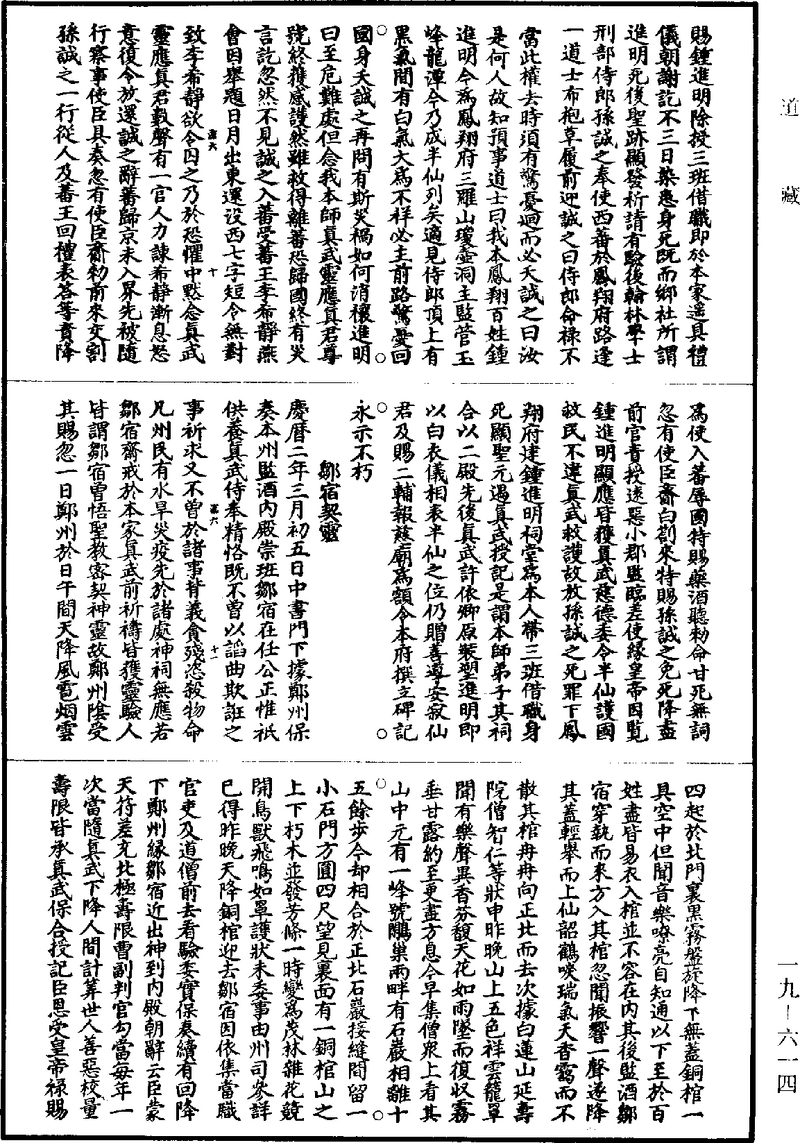 賜鍾進明除授三班借職即於本家遥具禮
儀朝謝訖不三日染患身死既而鄉社所謂
進明死後聖跡顯發祈請有驗後翰林學士
刑部侍郎孫誠之奉使西蕃於鳳翔府路逢
一道士布袍草履前迎誠之曰侍郎命禄不
當此權去時須有驚憂迴而必夭誠之曰汝
是何人故知預事道士曰我本鳳翔百姓鍾
進明今爲鳳翔府三羅山瓊壺洞主監管玉
峰龍潭今乃成半仙列矣適見侍郎頂上有
黑氣間有白氣大爲不祥必主前路驚憂回
國身夭誠之再問有斯災禍如何消禳進明
曰至危難處但念我本師真武靈應真君尊
號終獲感護然雖救得離蕃恐歸國終有災
言訖忽然不見誠之入蕃受蕃王李希靜燕
會因舉題日月出東還沒西七字短令無對
致李希靜欲令囚之乃於恐懼中默念真武
靈應真君數聲有一官人力諫希靜漸息怒
意復令放還誠之辭蕃歸京未入界先被隨
行察事使臣具奏忽有使臣齎勑前來交割
孫誠之一行從人及蕃王回禮表荅等責降
爲使入蕃辱國特賜藥酒聽勑命甘死無詞
忽有使臣齎白劄來特賜孫誠之免死降盡
前官責授逺惡小郡監臨差使緣皇帝因覧
鍾進明顯應皆獲真武慈德委令半仙護國
救民不違真武救護故放孫誠之死罪下鳳
翔府建鍾進明祠堂爲本人帶三班借職身
死顯聖元遇真武授記是謂本師弟子其祠
合以二殿先後真武許依卿原裝塑進明即
以白衣儀相表半仙之位仍贈善導安寂仙
君及賜二輔報慈廟爲額令本府撰立碑記
永示不朽
鄒宿契靈
慶曆二年三月初五日中書門下據鄭州保
奏本州監酒内殿崇班鄒宿在任公正惟祇
供養真武侍奉精恪既不曽以謟曲欺誑之
事祈求又不曽於諸事背義貪殘恣殺物命
凡州民有水旱災疫先於諸處神祠無應若
鄒宿齋戒於本家真武前祈禱皆獲靈驗人
皆謂鄒宿曽悟聖教密契神靈故鄭州陰受
其賜忽一日鄭州於日午間天降風雹烟雲
四起於北門裏黑霧盤旋降下無蓋銅棺一
具空中但聞音樂嘹亮自知通以下至於百
姓盡皆易衣入棺並不容在内其後監酒鄒
宿穿執而來方入其棺忽聞振響一聲遂降
其蓋輕舉而上仙韶鶴唳瑞氣天香靄而不
散其棺冉冉向正北而去次據白蓮山延壽
院僧智仁等狀申昨晚山上五色祥雲籠罩
聞有樂聲異香芬馥天花如雨墜而復収霧
垂甘露約至更盡方息今早集僧衆上看其
山中元有一峰號鵰巢兩畔有石巖相離十
五餘步今却相合於正北石巖接縫間留一
小石門方圓四尺望見裏面有一銅棺山之
上下朽木並發芳條一時變爲茂林雜花競
開鳥獸飛鳴如罩護狀未委事由州司參詳
已得昨晚天降銅棺迎去鄒宿因依集當職
官吏及道僧前去看驗委實保奏續有回降
下鄭州緣鄒宿近出神到内殿朝辭云臣蒙
天符差充北極壽限曹副判官勾當每年一
次當隨真武下降人間計筭世人善惡校量
壽限皆承真武保合授記臣恩受皇帝禄賜
道藏
一九－六一四